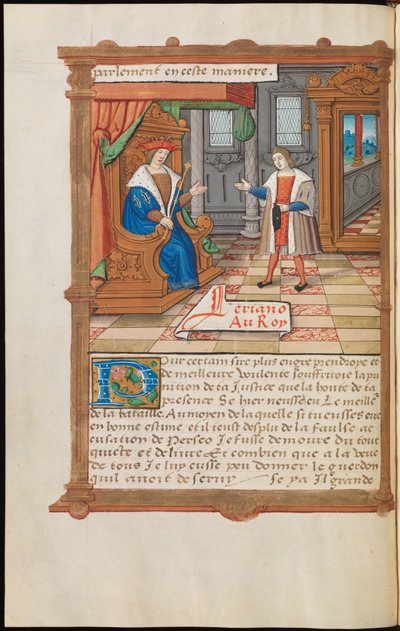 parlement en ceste maniere.
Leriano
Au Roy
Pour certain sire plus eusse prendroye et
de meilleure voulente souffriroie la pu
nition de ta Justice que la bonte de ta
presence Se hier neusse eu Le meille
de la bataille. Au moyen de laquelle si tu eusses eue
en bonne estime et il teust desplu de la faulse ac
cusation de Perseo Je fusse demoure du tout
quicte et delivre Et combien que a la veue
de tous Je luy eusse peu donner le guerdon
quil avoit de servy Se ya Il grande